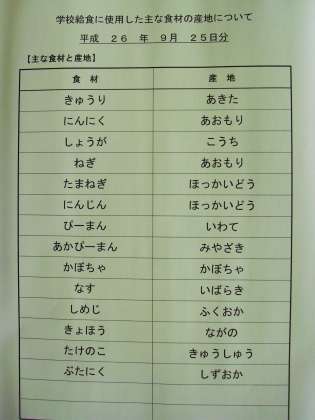 学校給食に使用した主な食材の産地について
平成 26 年 9月 25日分
【主な食材と産地】
食 材 産 地
きゅうり あきた
にんにく あおもり
しょうが こうち
ねぎ あおもり
たまねぎ ほっかいどう
にんじん ほっかいどう
ぴーまん いわて
あかぴーまん みやざき
かぼちゃ かぼちゃ
なす いばらき
しめじ ふくおか
きょほう ながの
たけのこ きゅうしゅう
ぶたにく しずおか